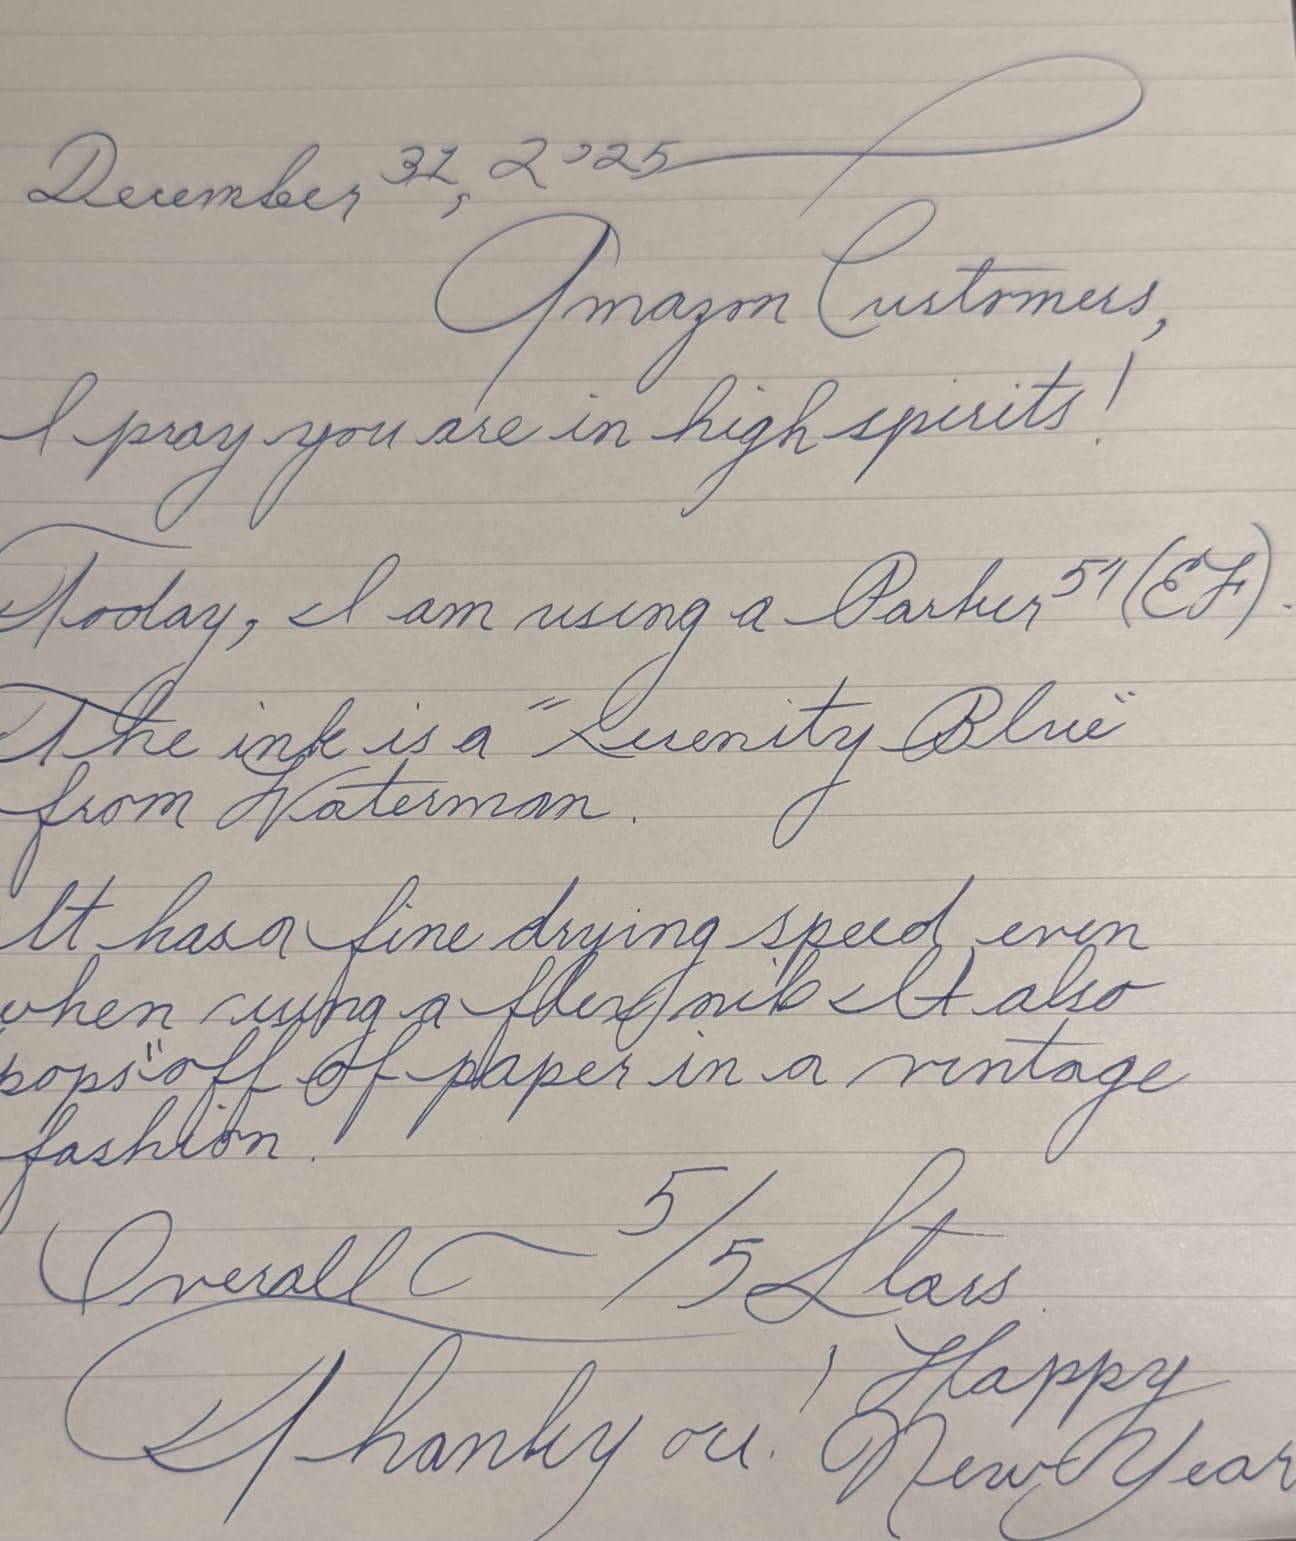 December 31, 2025
Amazon Customers,
I pray you are in high spirits!
Today, I am using a Parker 51 (EF).
The ink is a "Serenity Blue"
from Waterman.
It has a fine drying speed even
when using a flex nib. It also
pops" off of paper in a vintage
fashion.
Overall 5/5 Stars.
Thank you! Happy
New Year